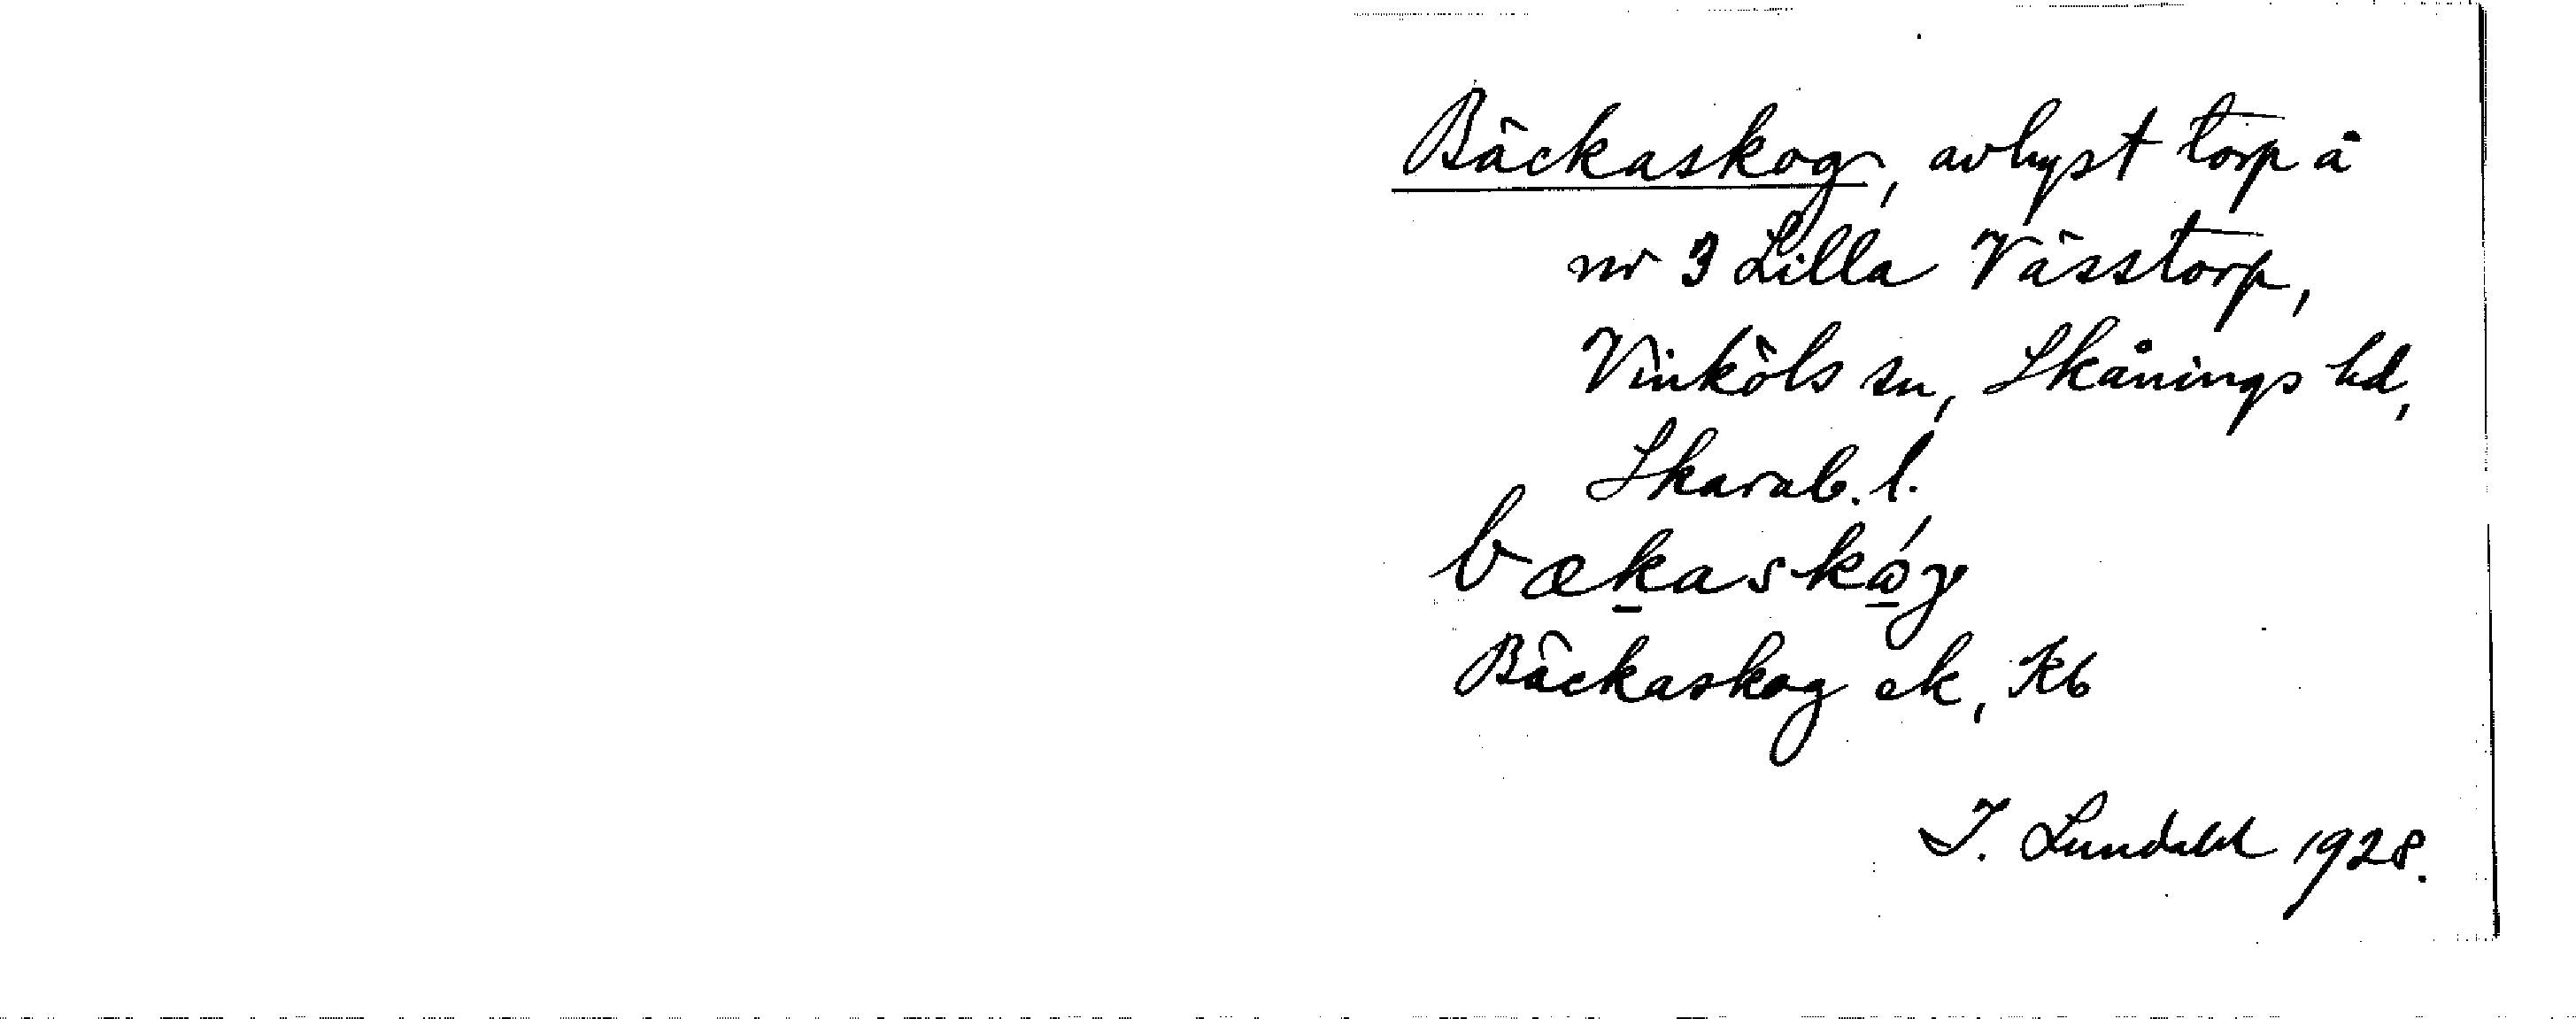 Bäckaskog, avhyst torp å
nr 3 Lilla Vässtorp,
Vinköls sn, Skånings hd,
Skarab. l.
bækaskóγ
Bäckaskog ek, Kb
I. Lundahl 1928.